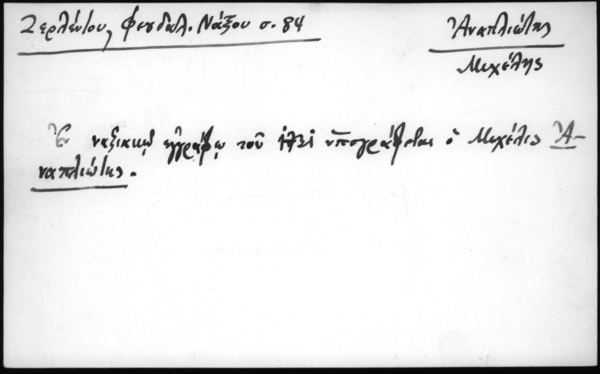 Ζερλέντου, Φεουδαλ. Νάξου σ. 84
Ἀναπλιώτης
Μιχέλης
Ἐν ναξιακῷ ἐγγράφῳ τοῦ 1731 ὑπογράφεται ὁ Μιχέλης Ἀ-
ναπλιώτης.